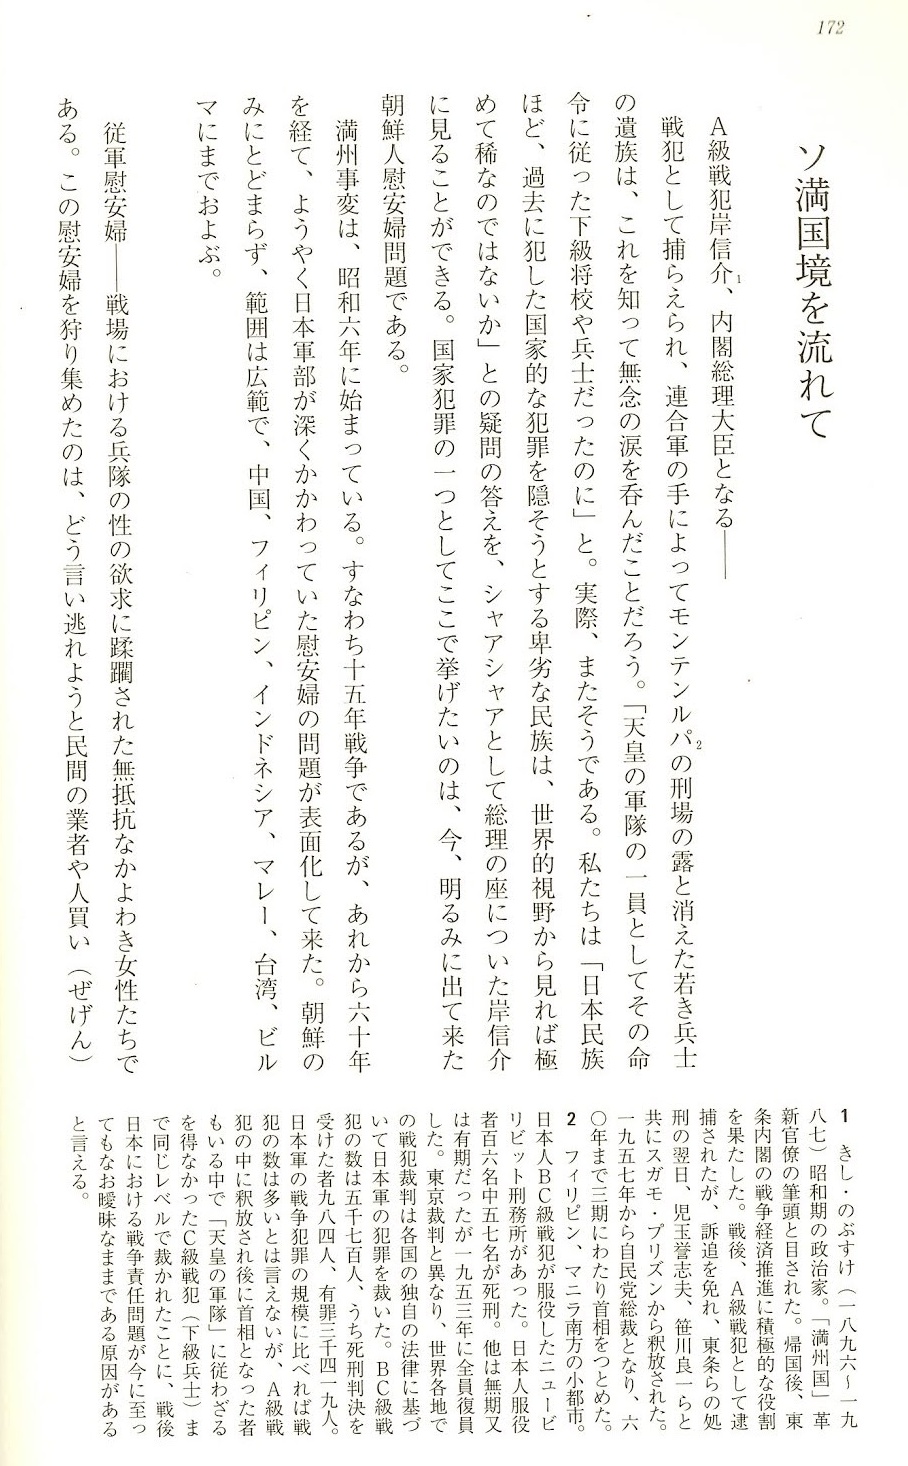 172
ソ満国境を流れて
A級戦犯岸信介1、内閣総理大臣となる――
戦犯として捕らえられ、連合軍の手によってモンテンルパ2の刑場の露と消えた若き兵士
の遺族は、これを知って無念の涙を呑んだことだろう。「天皇の軍隊の一員としてその命
令に従った下級将校や兵士だったのに」と。実際、またそうである。私たちは「日本民族
ほど、過去に犯した国家的な犯罪を隠そうとする卑劣な民族は、世界的視野から見れば極
めて稀なのではないか」との疑問の答えを、シャアシャアとして総理の座についた岸信介
に見ることができる。国家犯罪の一つとしてここで挙げたいのは、今、明るみに出て来た
朝鮮人慰安婦問題である。
満州事変は、昭和六年に始まっている。すなわち十五年戦争であるが、あれから六十年
を経て、ようやく日本軍部が深くかかわっていた慰安婦の問題が表面化して来た。朝鮮の
みにとどまらず、範囲は広範で、中国、フィリピン、インドネシア、マレー、台湾、ビル
マにまでおよぶ。
従軍慰安婦――戦場における兵隊の性の欲求に蹂躙された無抵抗なかよわき女性たちで
ある。この慰安婦を狩り集めたのは、どう言い逃れようと民間の業者や人買い（ぜげん）
1 きし・のぶすけ（一八九六〜一九
八七）昭和期の政治家。「満州国」革
新官僚の筆頭と目された。帰国後、東
条内閣の戦争経済推進に積極的な役割
を果たした。戦後、A級戦犯として逮
捕されたが、訴追を免れ、東条らの処
刑の翌日、児玉誉志夫、笹川良一らと
共にスガモ・プリズンから釈放された。
一九五七年から自民党総裁となり、六
〇年まで三期にわたり首相をつとめた。
2 フィリピン、マニラ南方の小都市。
日本人BC級戦犯が服役したニュービ
リビット刑務所があった。日本人服役
者百六名中五七名が死刑。他は無期又
は有期だったが一九五三年に全員復員
した。東京裁判と異なり、世界各地で
の戦犯裁判は各国の独自の法律に基づ
いて日本軍の犯罪を裁いた。BC級戦
犯の数は五千七百人、うち死刑判決を
受けた者九八四人、有罪三千四一九人。
日本軍の戦争犯罪の規模に比べれば戦
犯の数は多いとは言えないが、A級戦
犯の中に釈放され後に首相となった者
もいる中で「天皇の軍隊」に従わざる
を得なかったC級戦犯（下級兵士）ま
で同じレベルで裁かれたことに、戦後
日本における戦争責任問題が今に至っ
てもなお曖昧なままである原因がある
と言える。